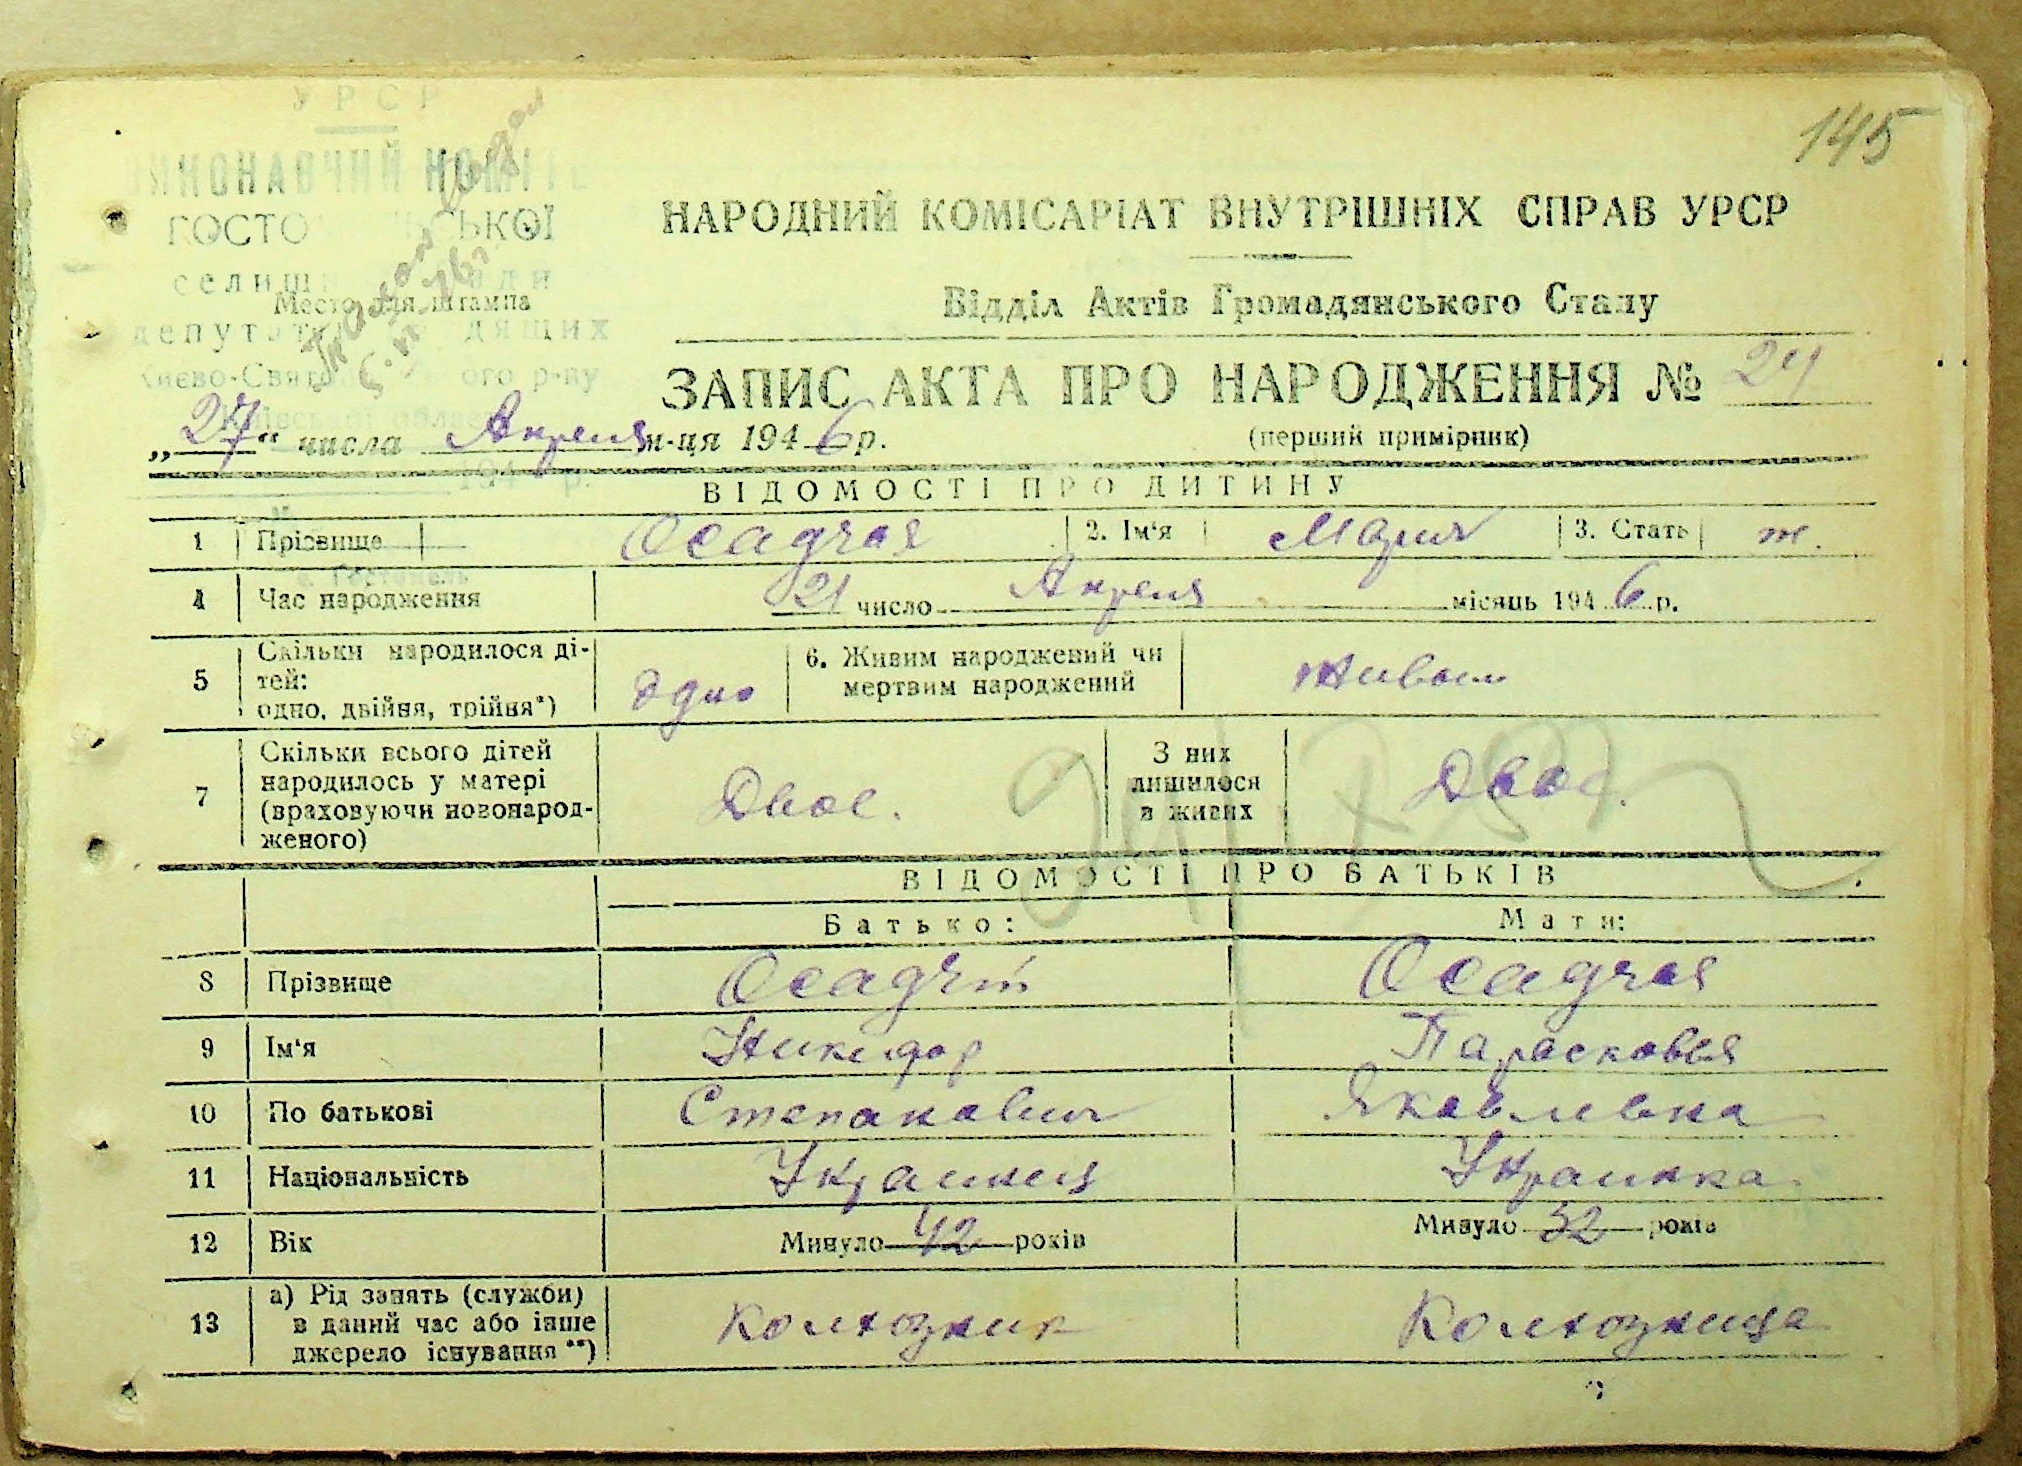 145
УРСР
ВИКОНАВЧИЙ КОМІТЕ
ГОСТО СЬКОЇ
селищ ди
Место для штампа
депутат дящих
києво-Свят ого р-ну
НАРОДНИЙ КОМІСАРІАТ ВНУТРІШНІХ СПРАВ УРСР
Відділ Актів Громадянського Стану
ЗАПИС АКТА ПРО НАРОДЖЕННЯ № 24
„27“ числа Апреля м-ця 1946 р. (перший примірник)
194 р.
ВІДОМОСТІ ПРО ДИТИНУ
1 Прізвище Осадчая 2. Ім‘я Мария 3. Стать ж.
с. Гостомель
4 Час народження 21 число Апреля місяць 1946 р.
5 Скільки народилося ді-
тей:
одно, двійня, трійня*) Одно
6. Живим народжений чи
мертвим народжений Живым
7 Скільки всього дітей
народилось у матері
(враховуючи новонарод-
женого) Двое.
З них
лишилося
в живих Двое.
ВІДОМОСТІ ПРО БАТЬКІВ
Батько: Мати:
8 Прізвище Осадчий Осадчая
9 Ім‘я Никифор Парасковья
10 По батькові Степанович Яковлевна
11 Національність Украинец Украинка
12 Вік Минуло 42 років Минуло 32 років
13 а) Рід занять (служби)
в даний час або інше
джерело існування **) Колхозник Колхозница